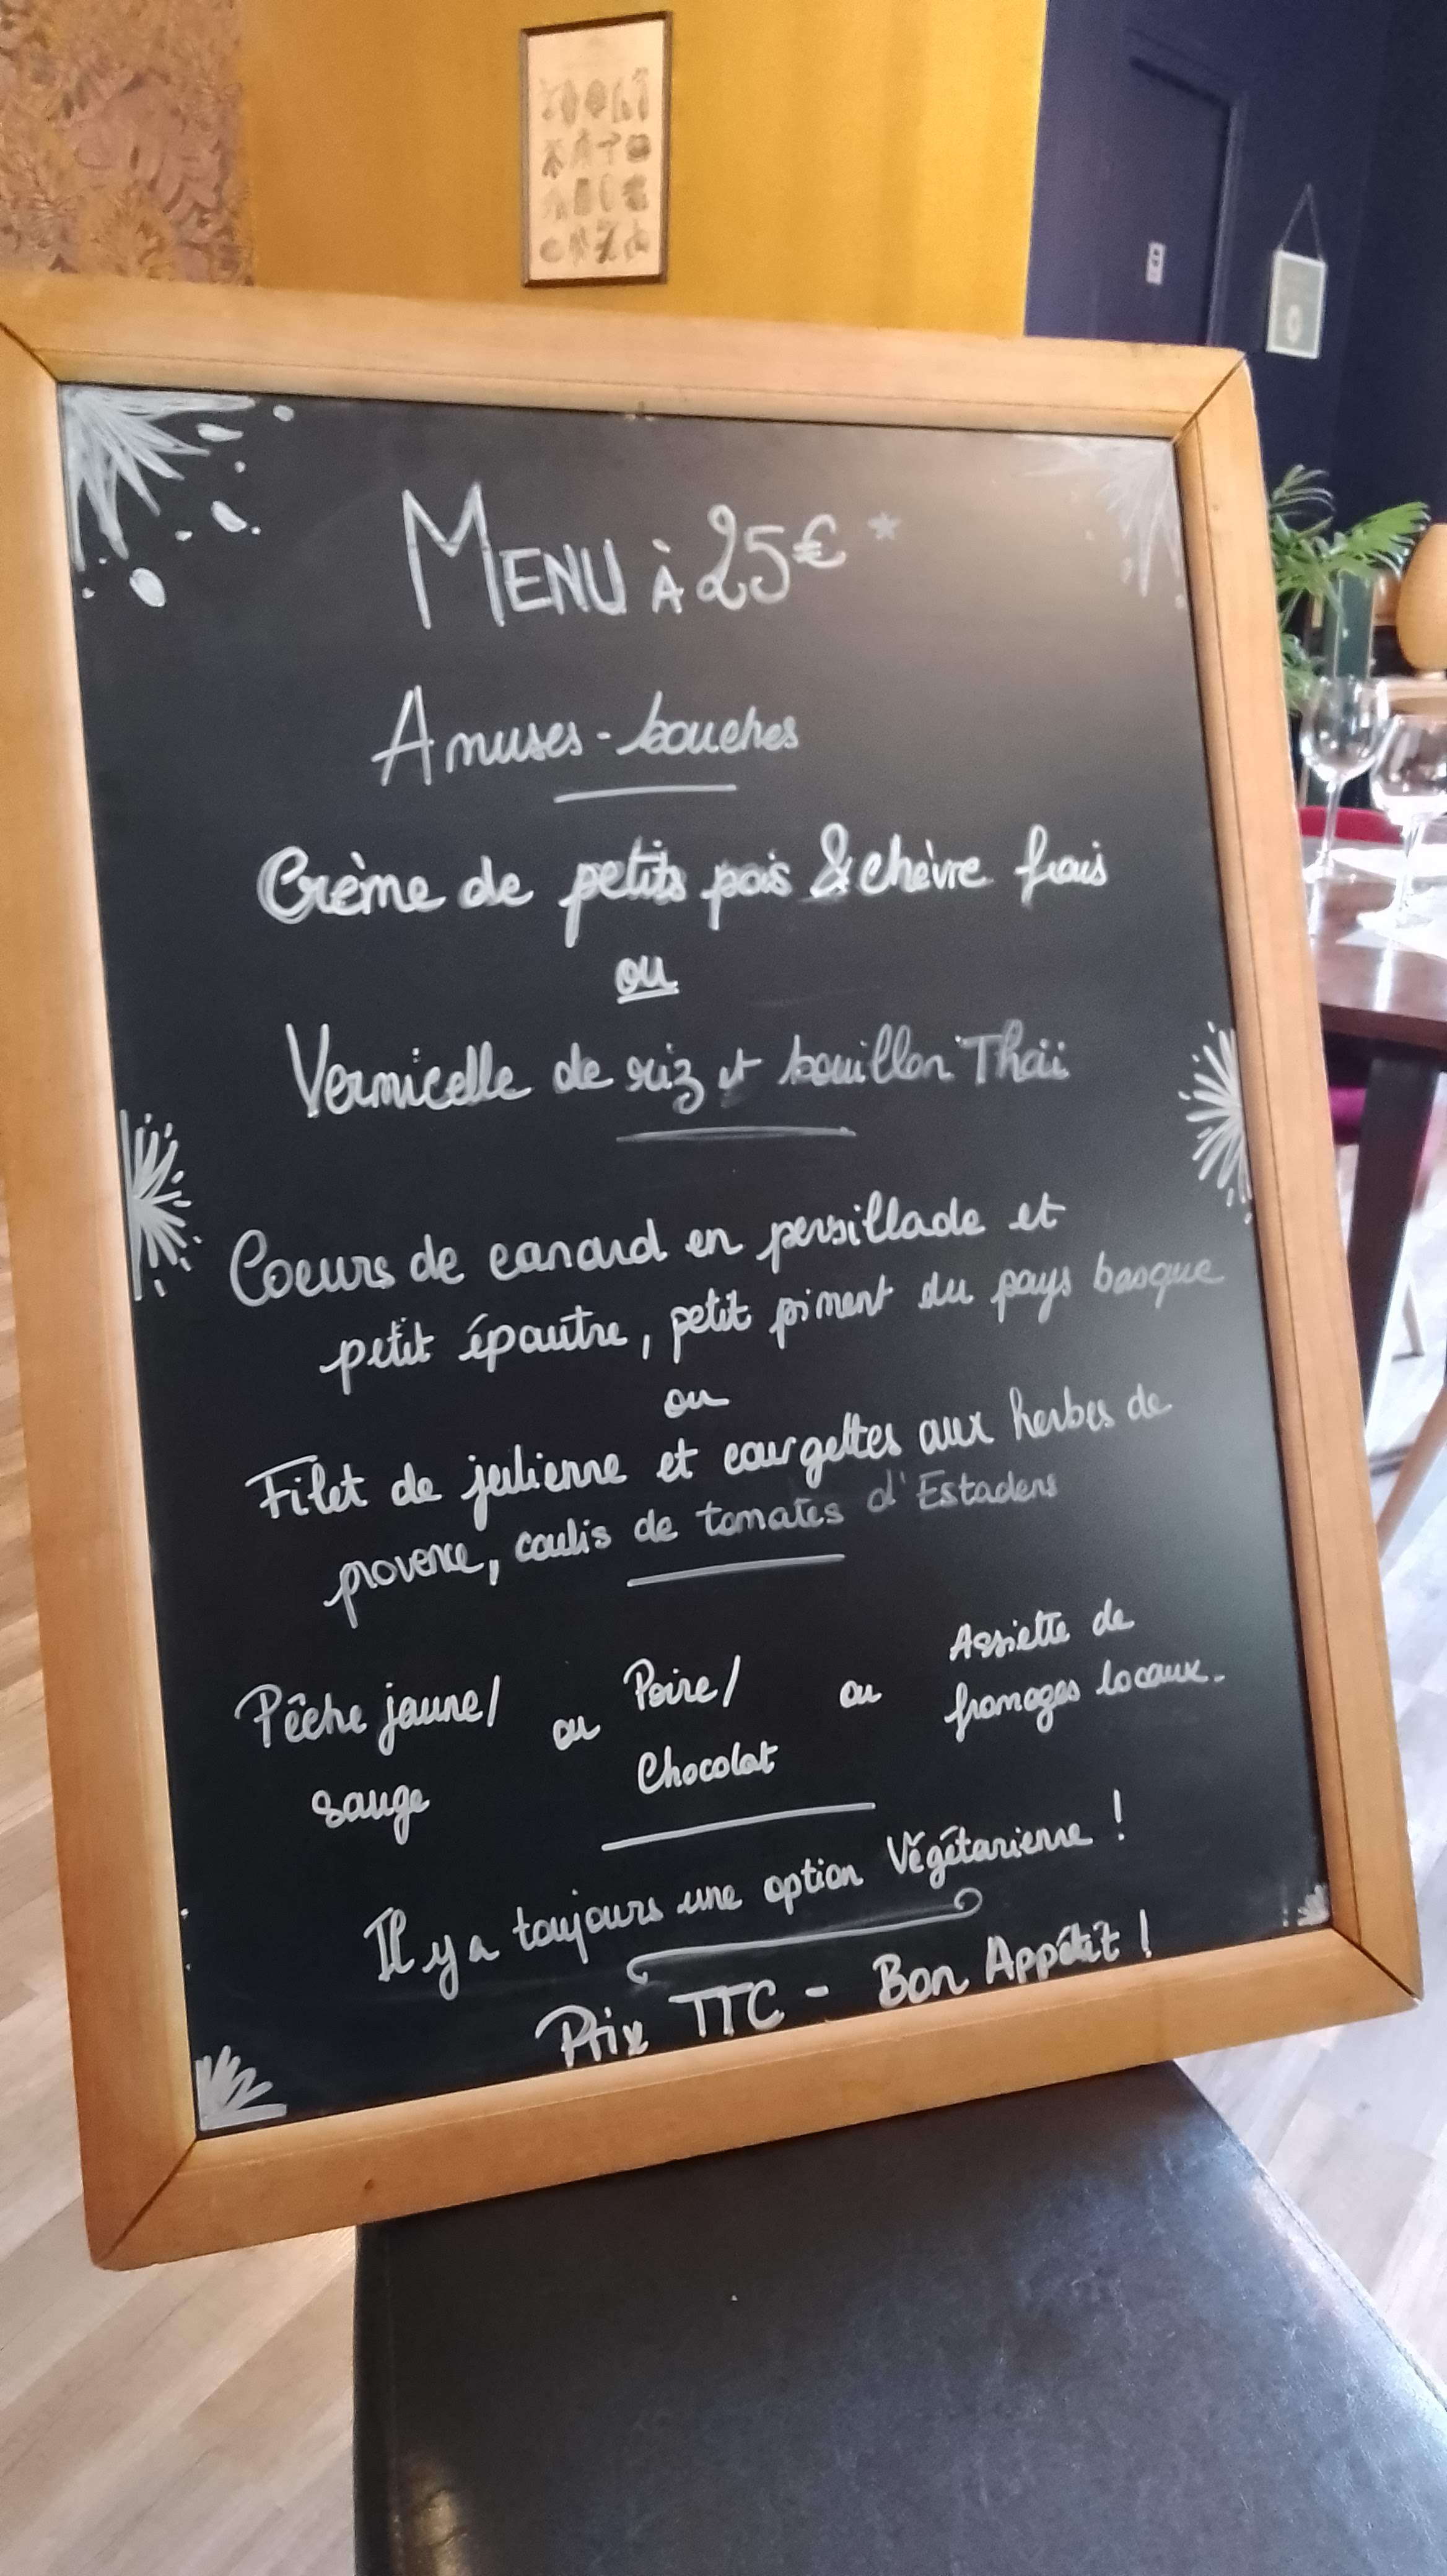 MENU À 25€*
Amuses-bouches
Crème de petits pois & chèvre frais
ou
Vermicelle de riz et bouillon Thaï
Coeurs de canard en persillade et
petit épautre, petit piment du pays basque
ou
Filet de julienne et courgettes aux herbes de
provence, coulis de tomates d'Estadens
Pêche jaune/ ou Poire/ ou Assiette de
sauge Chocolat fromages locaux.
Il y a toujours une option Végétarienne !
Prix TTC - Bon Appétit !